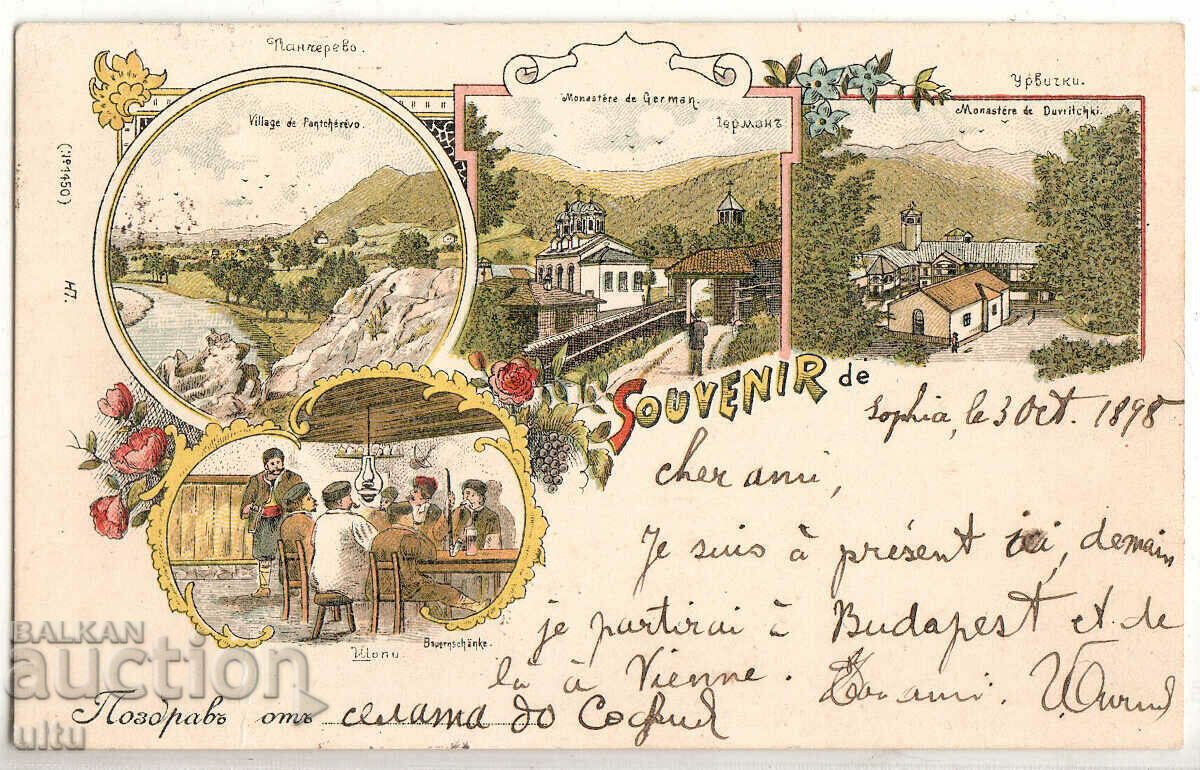 Панчерево.
Village de Pantchérévo.
Monastére de German.
Германъ
Урвички.
Monastére de Duvritchki.
(№ 1450)
H7.
SOUVENIR de
Sophia, le 3 Oct. 1898
cher ami,
Je suis à présent ici, demain
je partirai à Budapest et de
là à Vienne.
ami.
Bauernschänke.
Шопи.
Поздравъ отъ селата до София
BALKAN
auction
ultu